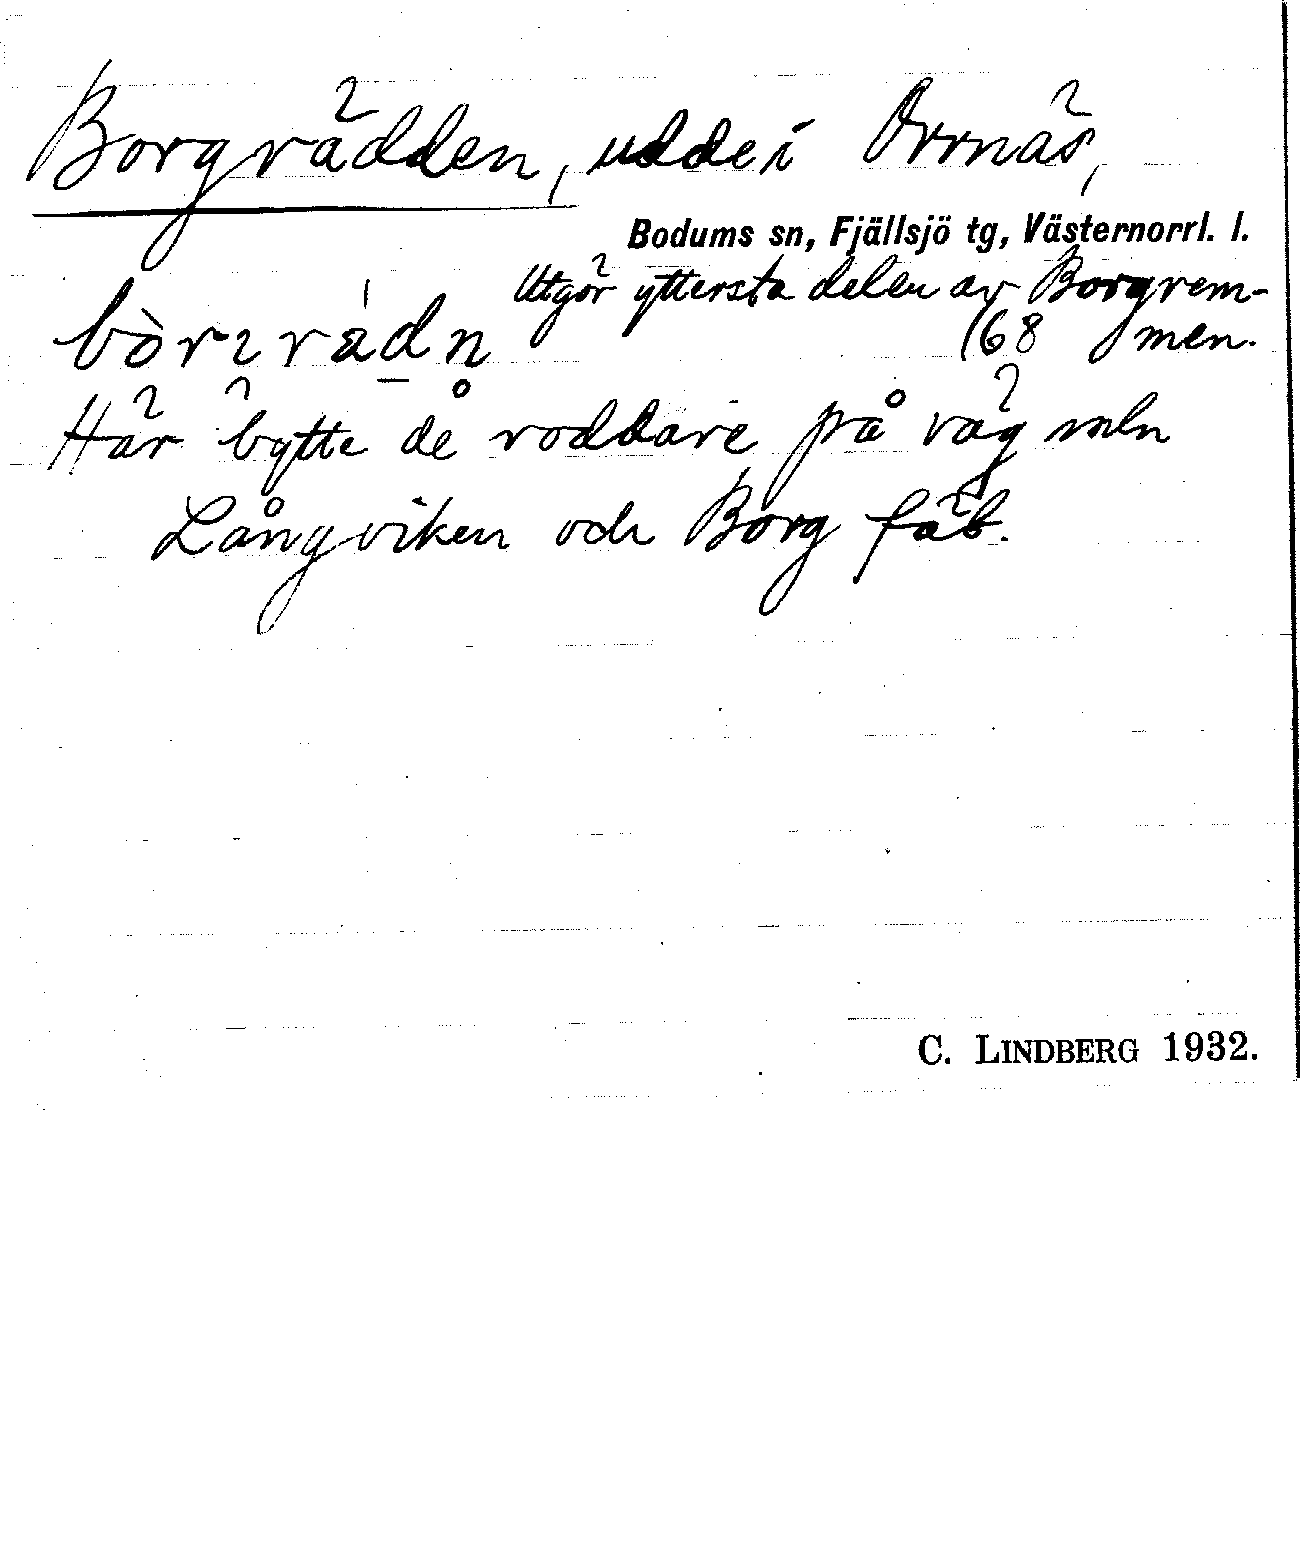 Borgrädden, udde i Orrnäs,
Bodums sn, Fjällsjö tg, Västernorrl. l.
Utgör yttersta delen av Borgrem-
168 men.
Här bytte de roddare på väg mln
Långviken och Borg fäb.
C. LINDBERG 1932.